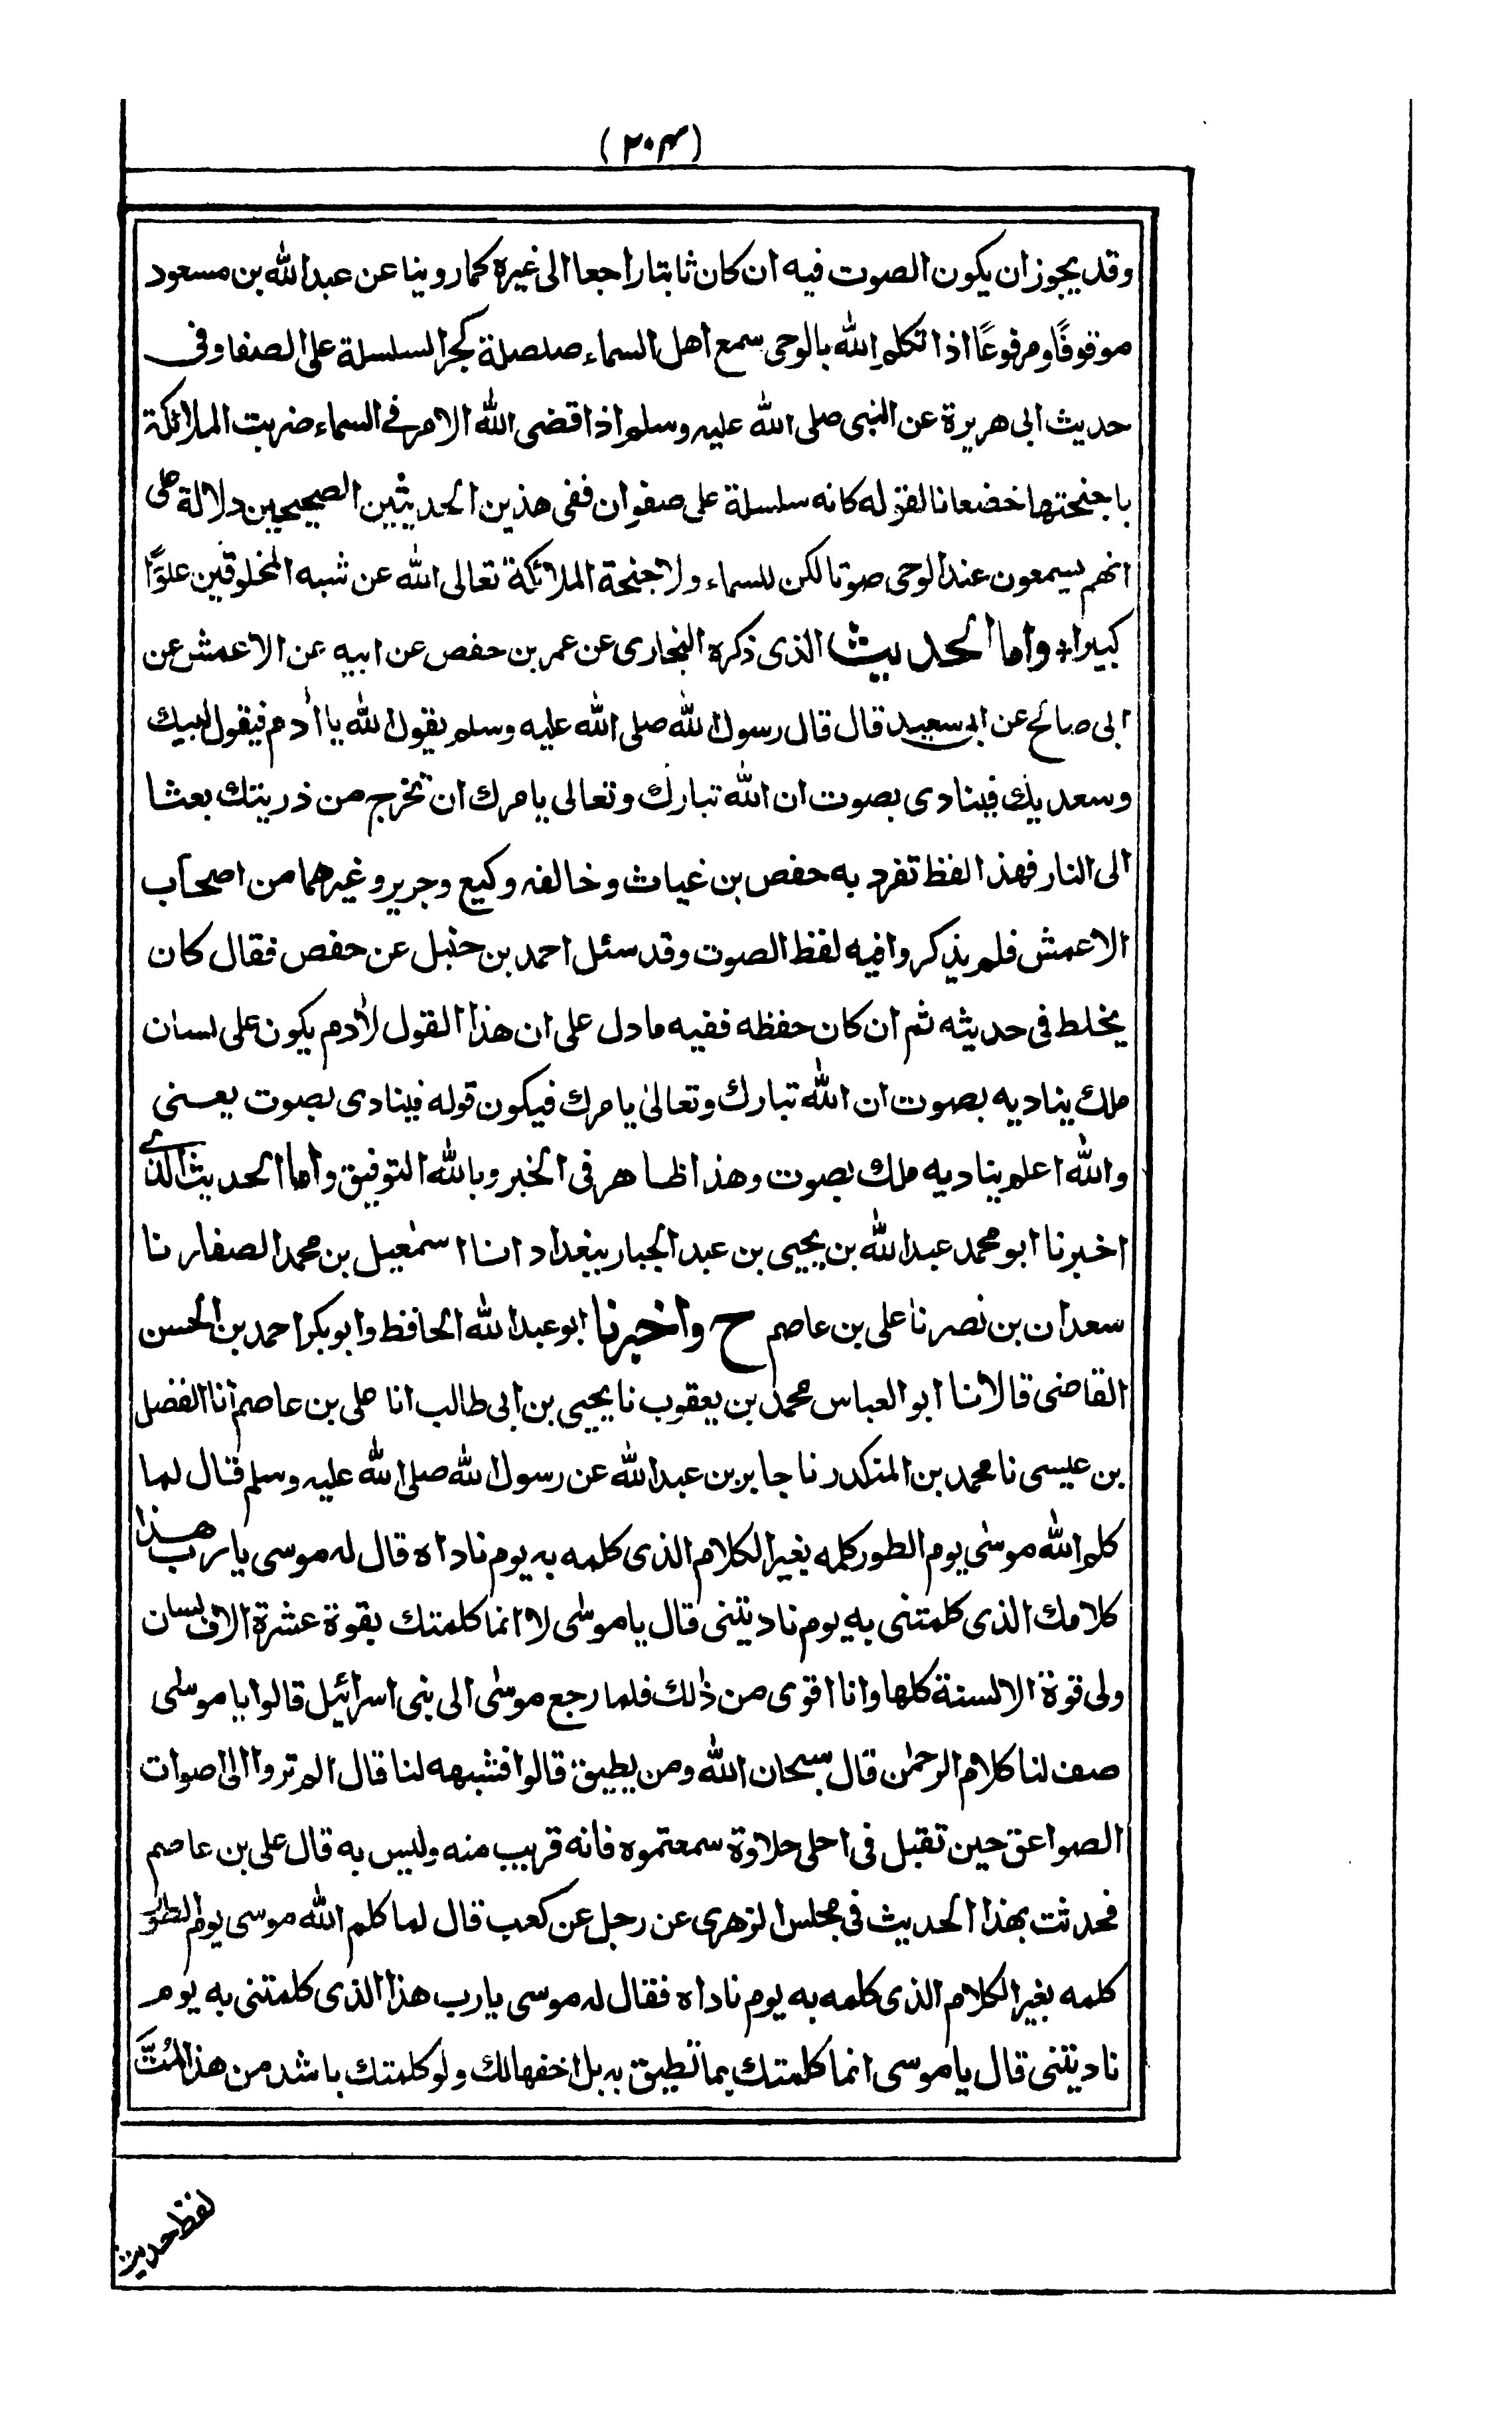 (٢٠٤)
وقد يجوز ان يكون الصوت فيه ان كان ثابتا راجعا الى غيره كما روينا عن عبد الله بن مسعود
موقوفًا ومرفوعًا اذا تكلم الله بالوحى سمع اهل السماء صلصلة كجر السلسلة على الصفا وفى
حديث ابى هريرة عن النبى صلى الله عليه وسلم اذا قضى الله الامر فى السماء ضربت الملائكة
باجنحتها خضعانا لقوله كانه سلسلة على صفوان ففى هذين الحديثين الصحيحين دلالة على
انهم يسمعون عند الوحى صوتا لكن للسماء ولاجنحة الملائكة تعالى الله عن شبه المخلوقين علوًّا
كبيرا ÷ واما الحديث الذى ذكره البخارى عن عمر بن حفص عن ابيه عن الاعمش عن
ابى صالح عن ابى سعيد قال قال رسول الله صلى الله عليه وسلم يقول الله يا ادم فيقول لبيك
وسعديك فينادى بصوت ان الله تبارك وتعالى يامرك ان تخرج من ذريتك بعثا
الى النار فهذا لفظ تفرد به حفص بن غياث وخالفه وكيع وجرير وغيرهما من اصحاب
الاعمش فلم يذكروا فيه لفظ الصوت وقد سئل احمد بن حنبل عن حفص فقال كان
يخلط فى حديثه ثم ان كان حفظه ففيه ما دل على ان هذا القول لأدم يكون على لسان
ملك يناديه بصوت ان الله تبارك وتعالىٰ يامرك فيكون قوله فينادى بصوت يعنى
والله اعلم يناديه ملك بصوت وهذا ظاهر فى الخبر وبالله التوفيق واما الحديث الذى
اخبرنا ابو محمد عبد الله بن يحيى بن عبد الجبار ببغداد انا اسمٰعيل بن محمد الصفار نا
سعدان بن نصر نا على بن عاصم ح واخبرنا ابو عبد الله الحافظ وابو بكر احمد بن الحسن
القاضى قالا نا ابو العباس محمد بن يعقوب نا يحيى بن ابى طالب انا على بن عاصم انا الفضل
بن عيسى نا محمد بن المنكدر نا جابر بن عبد الله عن رسول الله صلى الله عليه وسلم قال لما
كلم الله موسٰى يوم الطور كلمه بغير الكلام الذى كلمه به يوم ناداه قال له موسى يا رب هذا
كلامك الذى كلمتنى به يوم ناديتنى قال يا موسٰى لا انما كلمتك بقوة عشرة الاف لسان
ولى قوة الالسنة كلها وانا اقوى من ذٰلك فلما رجع موسٰى الى بنى اسرائيل قالوا يا موسٰى
صف لنا كلام الرحمٰن قال سبحان الله ومن يطيق قالوا فشبهه لنا قال الم تروا الى اصوات
الصواعق حين تقبل فى احلى حلاوة سمعتموه فانه قريب منه وليس به قال على بن عاصم
فحدثت بهذا الحديث فى مجلس الزهرى عن رجل عن كعب قال لما كلم الله موسى يوم الطور
كلمه بغير الكلام الذى كلمه به يوم ناداه فقال له موسى يا رب هذا الذى كلمتنى به يوم
ناديتنى قال يا موسى انما كلمتك بما تطيق به بل اخفها لك ولو كلمتك باشد من هذا لمُتَّ
لفظ حديث